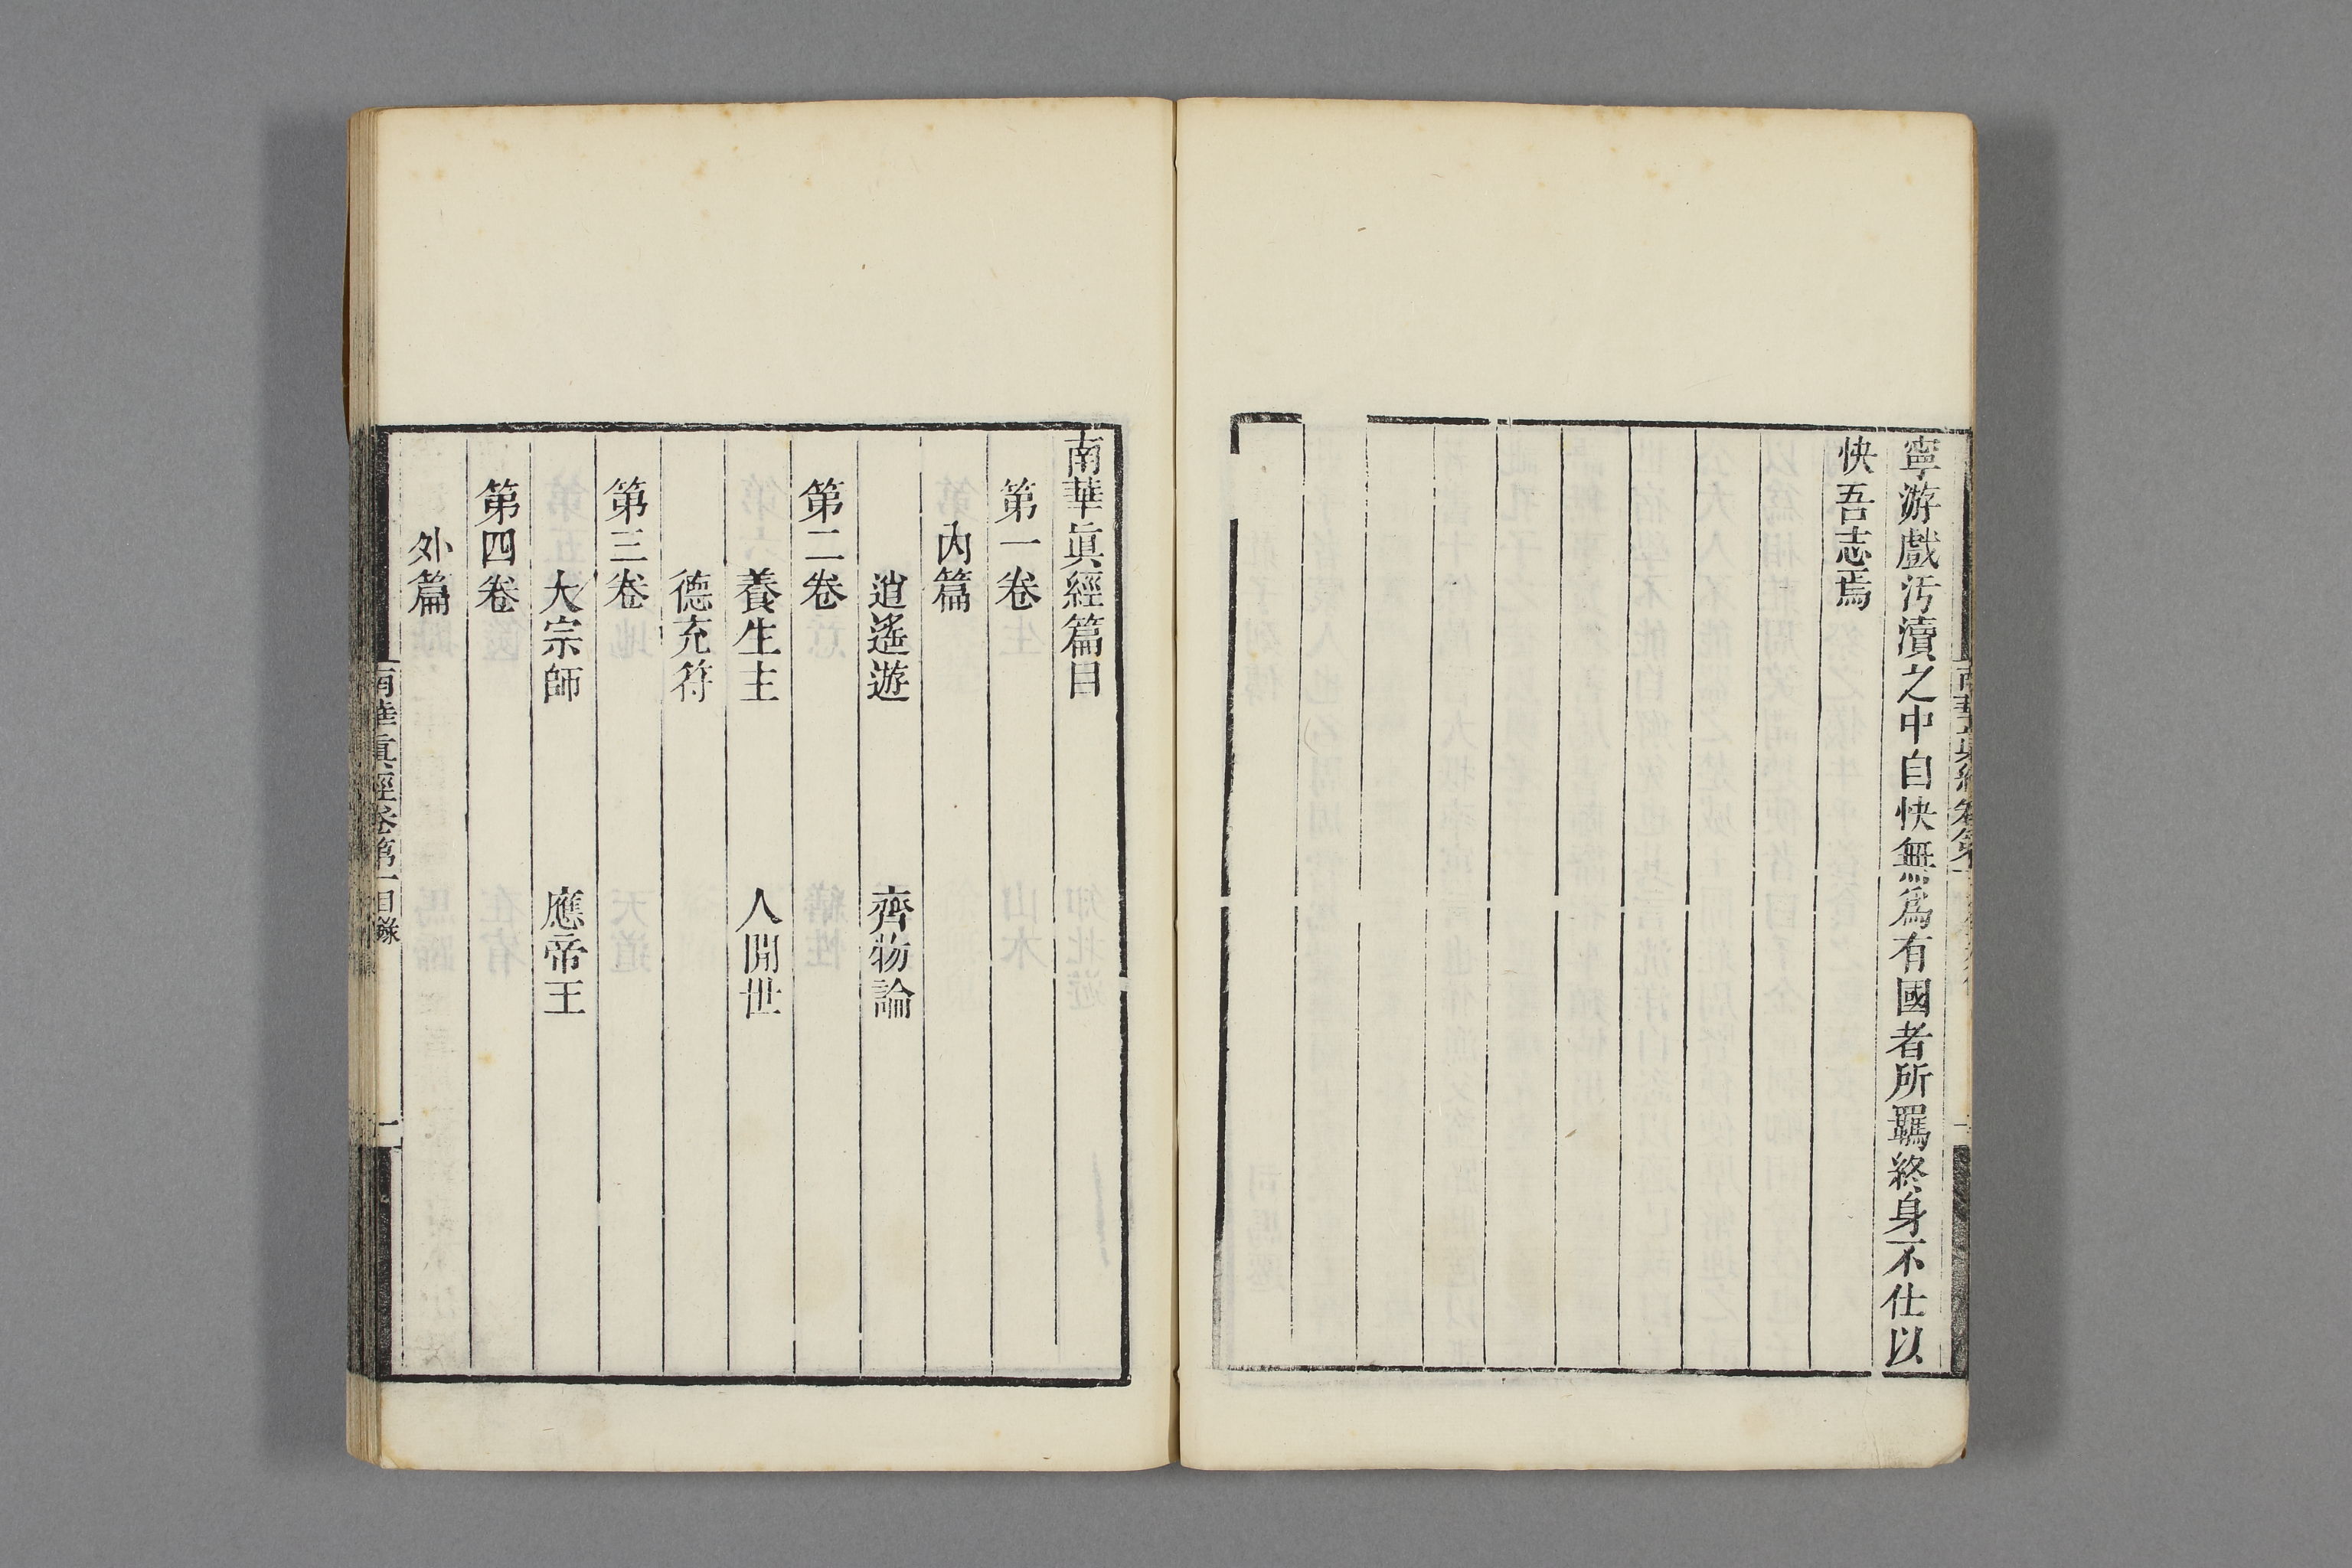 寧游戲汚瀆之中自快無爲有國者所羈終身不仕以
快吾志焉
南華眞經篇目
第一卷
內篇
逍遙遊 齊物論
第二卷
養生主 人間世
德充符
第三卷
大宗師 應帝王
第四卷
外篇
南華眞經卷第一目錄
一